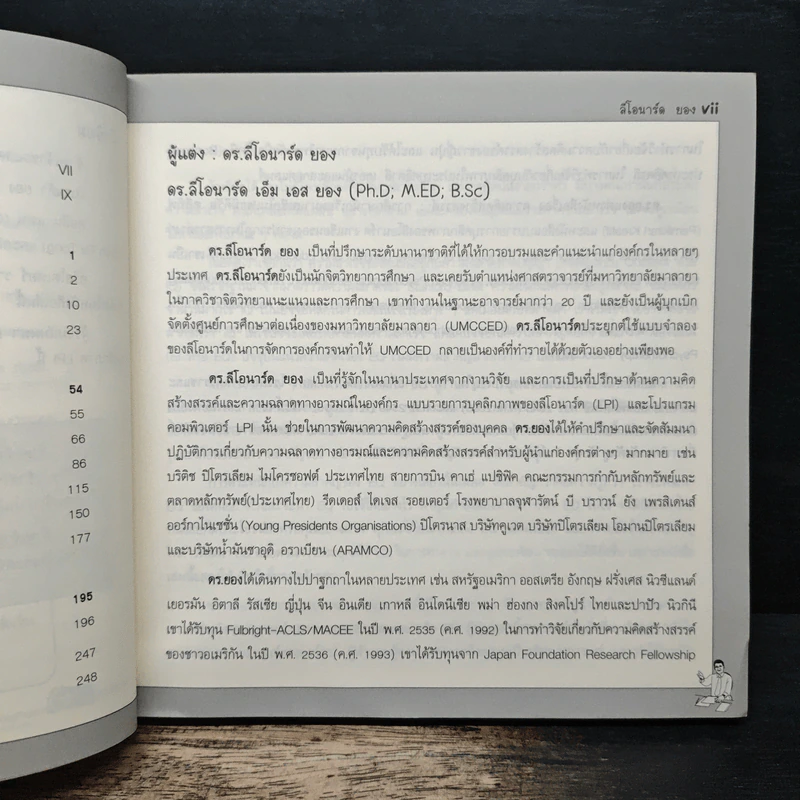 VII
IX
1
2
10
23
54
55
66
86
115
150
177
195
196
247
248
ลีโอนาร์ด ยอง vii
ผู้แต่ง : ดร.ลีโอนาร์ด ยอง
ดร.ลีโอนาร์ด เอ็ม เอส ยอง (Ph.D; M.ED; B.Sc)
ดร.ลีโอนาร์ด ยอง เป็นที่ปรึกษาระดับนานาชาติที่ได้ให้การอบรมและคำแนะนำแก่องค์กรในหลายๆ
ประเทศ ดร.ลีโอนาร์ดยังเป็นนักจิตวิทยาการศึกษา และเคยรับตำแหน่งศาสตราจารย์ที่มหาวิทยาลัยมาลายา
ในภาควิชาจิตวิทยาแนะแนวและการศึกษา เขาทำงานในฐานะอาจารย์มากว่า 20 ปี และยังเป็นผู้บุกเบิก
จัดตั้งศูนย์การศึกษาต่อเนื่องของมหาวิทยาลัยมาลายา (UMCCED) ดร.ลีโอนาร์ดประยุกต์ใช้แบบจำลอง
ของลีโอนาร์ดในการจัดการองค์กรจนทำให้ UMCCED กลายเป็นองค์ที่ทำรายได้ด้วยตัวเองอย่างเพียงพอ
ดร.ลีโอนาร์ด ยอง เป็นที่รู้จักในนานาประเทศจากงานวิจัย และการเป็นที่ปรึกษาด้านความคิด
สร้างสรรค์และความฉลาดทางอารมณ์ในองค์กร แบบรายการบุคลิกภาพของลีโอนาร์ด (LPI) และโปรแกรม
คอมพิวเตอร์ LPI นั้น ช่วยในการพัฒนาความคิดสร้างสรรค์ของบุคคล ดร.ยองได้ให้คำปรึกษาและจัดสัมมนา
ปฏิบัติการเกี่ยวกับความฉลาดทางอารมณ์และความคิดสร้างสรรค์สำหรับผู้นำแก่องค์กรต่างๆ มากมาย เช่น
บริติช ปิโตรเลียม ไมโครซอฟต์ ประเทศไทย สายการบิน คาเธ่ แปซิฟิค คณะกรรมการกำกับหลักทรัพย์และ
ตลาดหลักทรัพย์(ประเทศไทย) รีดเดอส์ ไดเจส รอยเตอร์ โรงพยาบาลจุฬารัตน์ บี บราวน์ ยัง เพรสิเดนส์
ออร์กาไนเซชั่น (Young Presidents Organisations) ปิโตรนาส บริษัทคูเวต บริษัทปิโตรเลียม โอมานปิโตรเลียม
และบริษัทน้ำมันซาอุดิ อราเบียน (ARAMCO)
ดร.ยองได้เดินทางไปปาฐกถาในหลายประเทศ เช่น สหรัฐอเมริกา ออสเตรีย อังกฤษ ฝรั่งเศส นิวซีแลนด์
เยอรมัน อิตาลี รัสเซีย ญี่ปุ่น จีน อินเดีย เกาหลี อินโดนีเซีย พม่า ฮ่องกง สิงคโปร์ ไทยและปาปัว นิวกินี
เขาได้รับทุน Fulbright-ACLS/MACEE ในปี พ.ศ. 2535 (ค.ศ. 1992) ในการทำวิจัยเกี่ยวกับความคิดสร้างสรรค์
ของชาวอเมริกัน ในปี พ.ศ. 2536 (ค.ศ. 1993) เขาได้รับทุนจาก Japan Foundation Research Fellowship